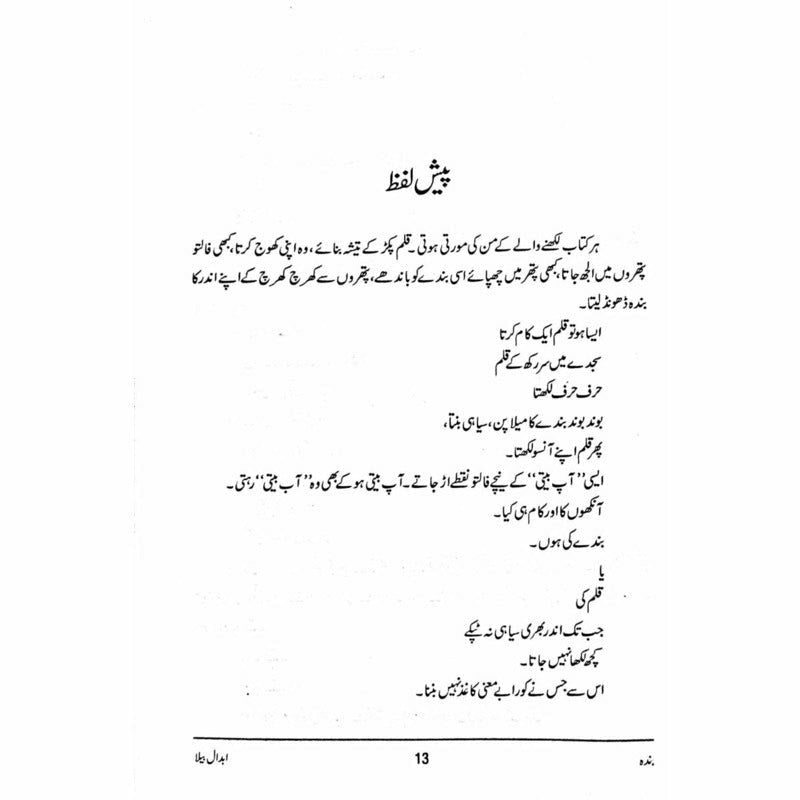 پیش لفظ
ہر کتاب لکھنے والے کے من کی مورتی ہوتی۔ قلم پکڑ کے تیشہ بنائے، وہ اپنی کھوج کرتا، کبھی فالتو
پتھروں میں الجھ جاتا، کبھی پتھر میں چھپائے اسی بندے کو باندھے، پتھروں سے کھرچ کھرچ کے اپنے اندر کا
بندہ ڈھونڈ لیتا۔
ایسا ہو تو قلم ایک کام کرتا
سجدے میں سر رکھ کے قلم
حرف حرف لکھتا
بوند بوند بندے کا میلا پن، سیاہی بنتا،
پھر قلم اپنے آنسو لکھتا۔
ایسی ”آپ بیتی“ کے نیچے فالتو نقطے اڑ جاتے۔ آپ بیتی ہو کے بھی وہ ”آب بیتی“ رہتی۔
آنکھوں کا اور کام ہی کیا۔
بندے کی ہوں۔
یا
قلم کی
جب تک اندر بھری سیاہی نہ ٹپکے
کچھ لکھا نہیں جاتا۔
اس سے جس نے کورا بے معنی کاغذ نہیں بننا۔
بندہ
13
ابدال بیلا